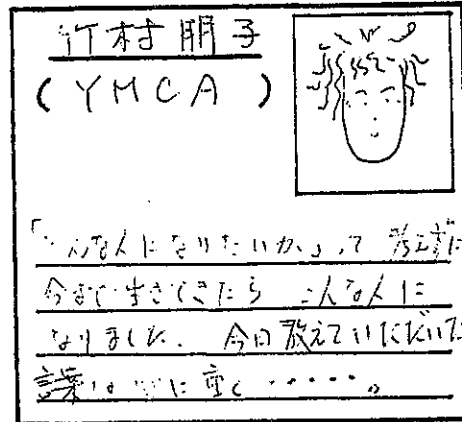 竹村朋子
(YMCA)
「どんな人になりたいか」って 考えずに
今まで生きてきたら こんな人に
なりました. 今日教えていただいた
言葉は に重く ・・・・・。